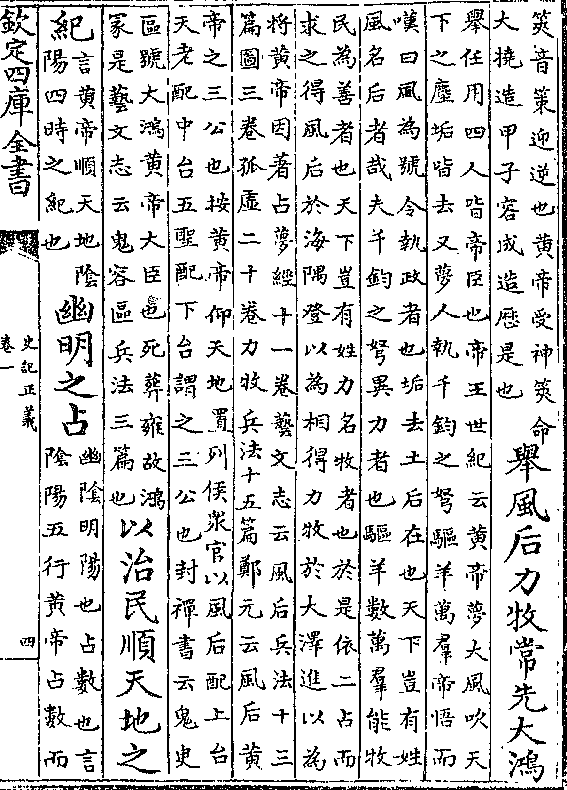 筴音策迎逆也黄帝受神筴命
大撓造甲子容成造厯是也
舉風后力牧常先大鴻
舉任用四人皆帝臣也帝王世紀云黄帝夢大風吹天
下之塵垢皆去又夢人執千鈞之弩驅羊萬羣帝悟而
嘆曰風為號令執政者也垢去土后在也天下豈有姓
風名后者哉夫千鈞之弩異力者也驅羊數萬羣能牧
民為善者也天下豈有姓力名牧者也於是依二占而
求之得風后於海隅登以為相得力牧於大澤進以為
將黄帝因著占夢經十一卷藝文志云風后兵法十三
篇圖三卷孤虛二十卷力牧兵法十五篇鄭元云風后黄
帝之三公也按黄帝仰天地置列侯衆官以風后配上台
天老配中台五聖配下台謂之三公也封禪書云鬼臾
區號大鴻黄帝大臣也死葬雍故鴻
冢是藝文志云鬼容區兵法三篇也
以治民順天地之
紀
言黄帝順天地陰
陽四時之紀也
幽明之占
幽陰明陽也占數也言
陰陽五行黄帝占數而
欽定四庫全書
史記正義
卷一
四